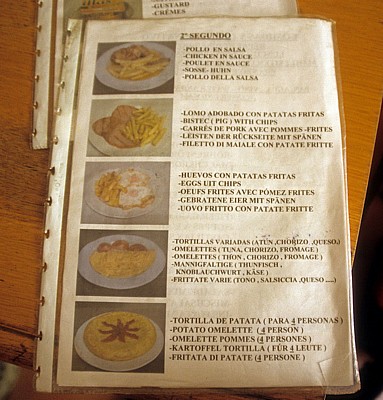 -GUSTARD
-CRÈMES
2º SEGUNDO
-POLLO EN SALSA
-CHICKEN IN SAUCE
-POULET EN SAUCE
-SOSSE- HUHN
-POLLO DELLA SALSA
-LOMO ADOBADO CON PATATAS FRITAS
-BISTEC ( PIG ) WITH CHIPS
-CARRÉS DE PORK AVEC POMMES -FRITES
-LEISTEN DER RÜCKSEITE MIT SPÄNEN
-FILETTO DI MAIALE CON PATATE FRITTE
-HUEVOS CON PATATAS FRITAS
-EGGS UIT CHIPS
-OEUFS FRITES AVEC PÓMEZ FRITES
-GEBRATENE EIER MIT SPÄNEN
-UOVO FRITTO CON PATATE FRITTE
-TORTILLAS VARIADAS (ATÚN ,CHORIZO ,QUESO,)
-OMELETTES ( TUNA, CHORIZO, FROMAGE )
-OMELETTES ( THON , CHORIZO , FROMAGE )
-MANNIGFALTIGE ( THUNFISCH ,
KNOBLAUCHWURT , KÄSE )
-FRITTATE VARIE (TONO , SALSICCIA ,QUESO .....)
-TORTILLA DE PATATA ( PARA 4 PERSONAS )
-POTATO OMELETTE ( 4 PERSON )
-OMELETTE POMMES (4 PERSONES )
-KARTOFFEL TORTILLA ( FÜR 4 LEUTE )
-FRITATA DI PATATE (4 PERSONE )